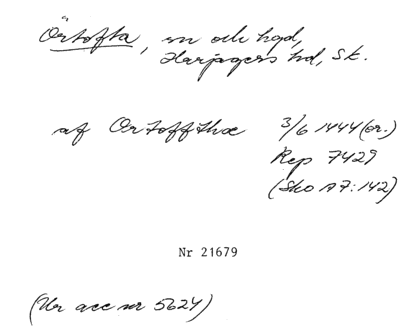 Örtofta, sn och hgd,
Harjagers hd, Sk.
af Ortoffthæ 3/6 1444 (or.)
Rep 7429
(Sko 17:142)
Nr 21679
(Ur acc nr 5624)